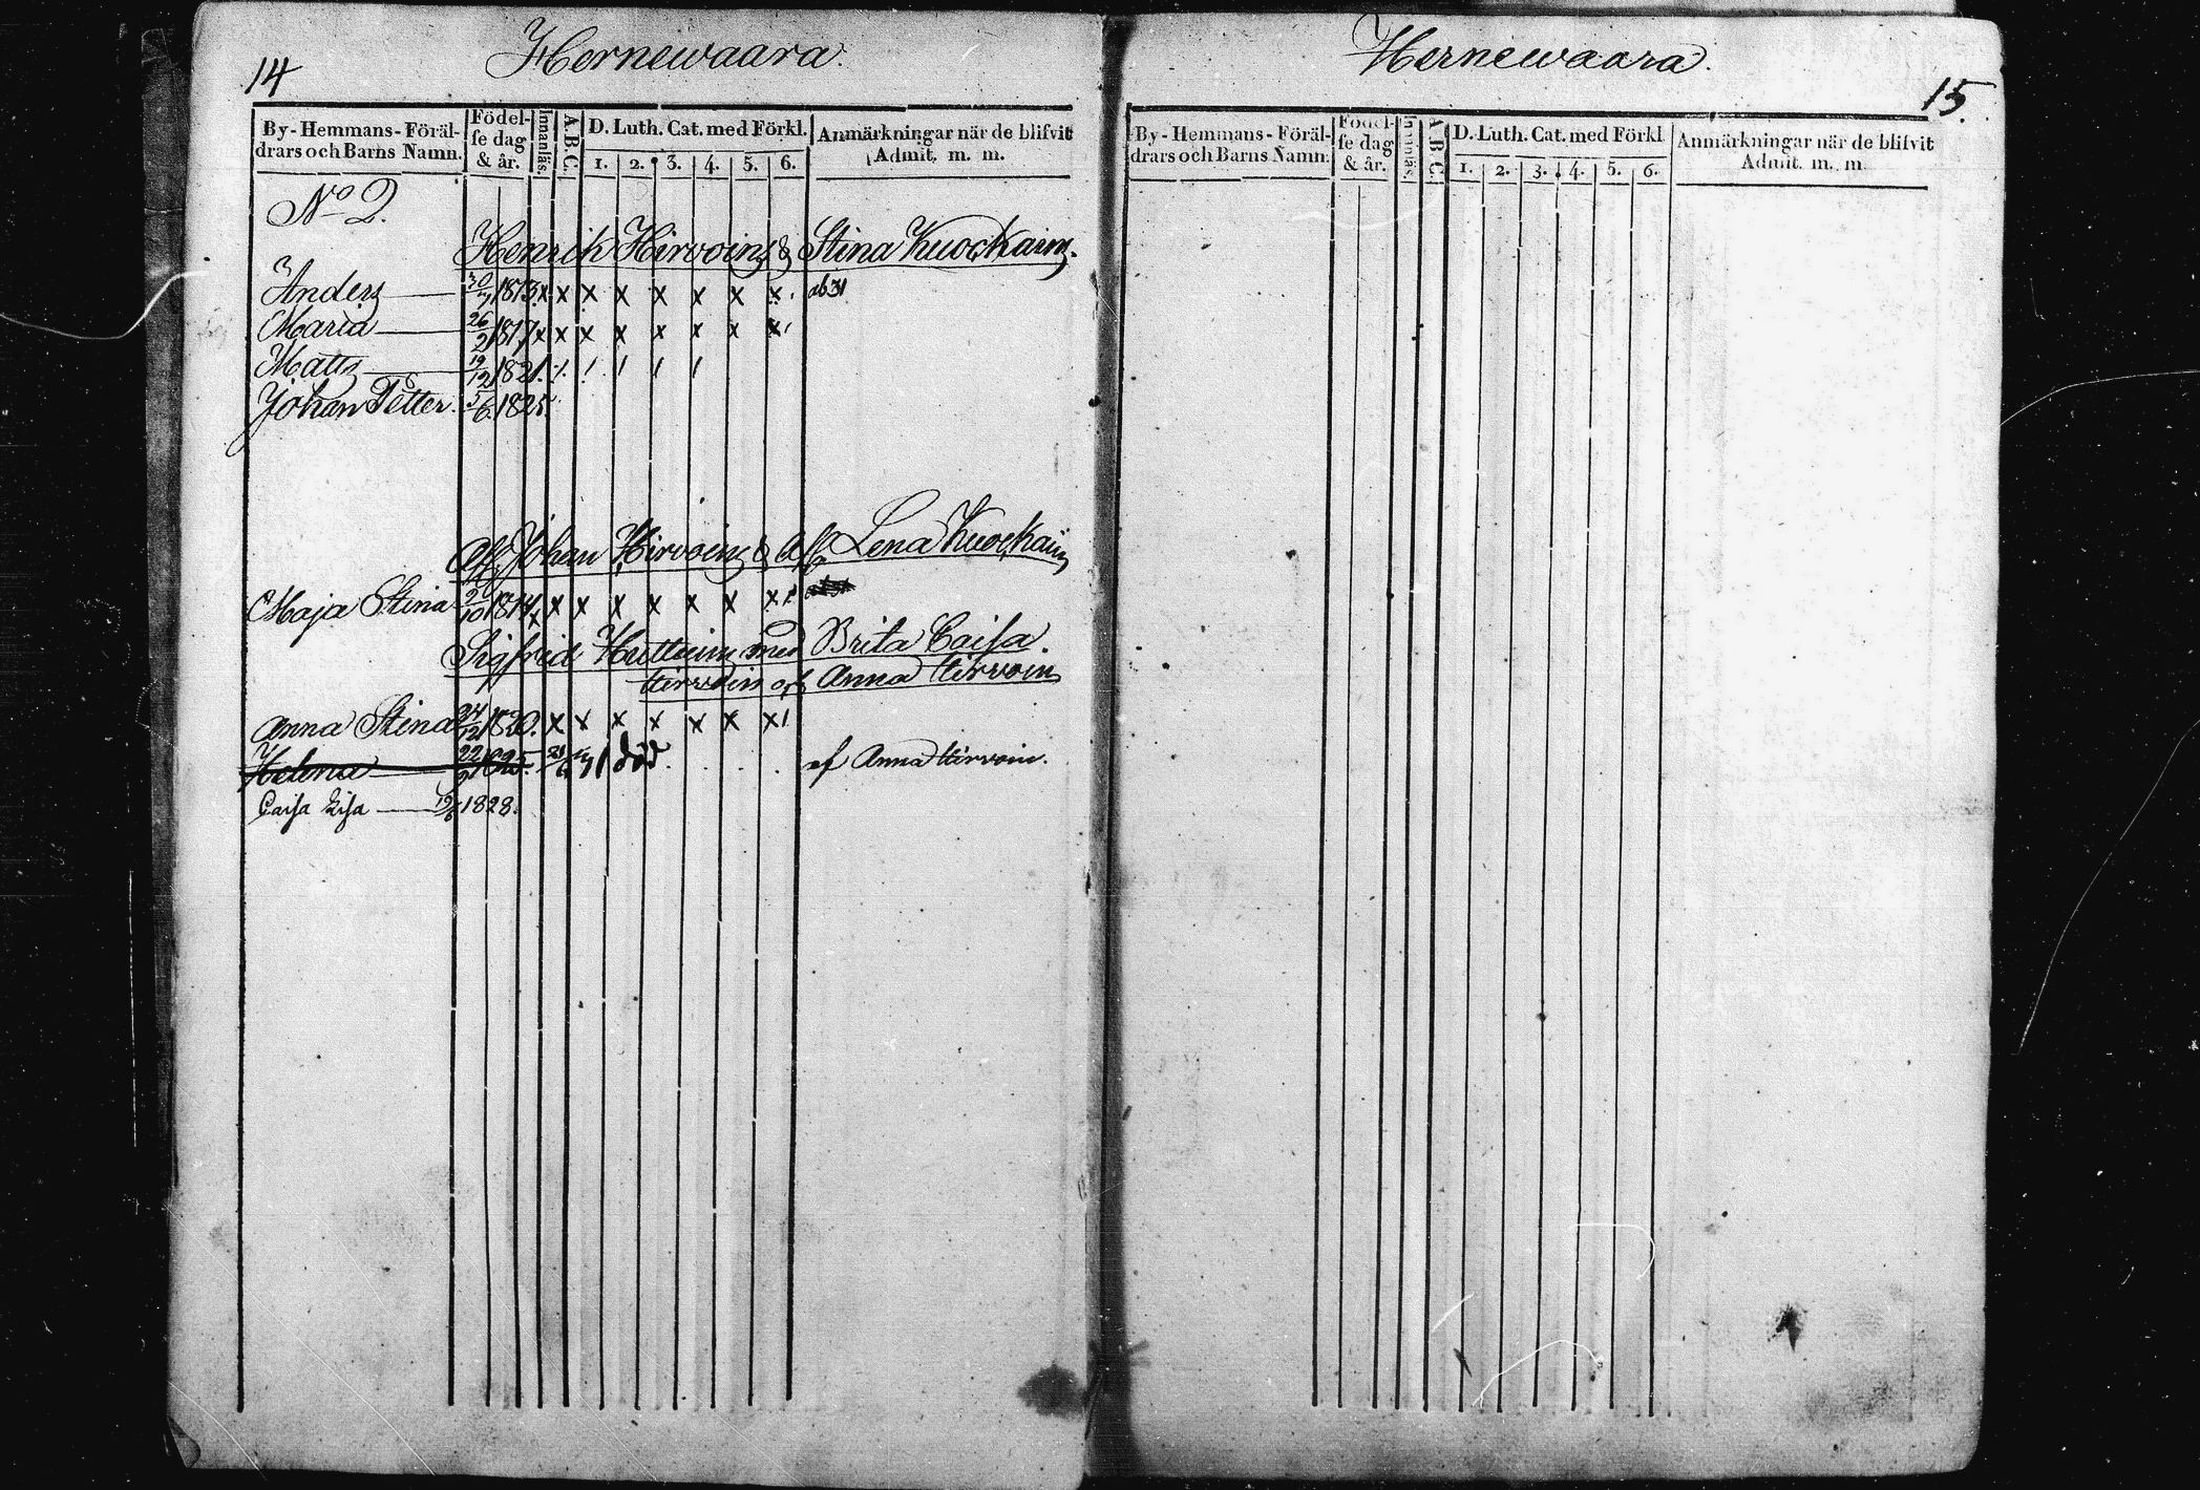 14
Hernewaara.
By-Hemmans-Föräl-
drars och Barns Namn.
Födel-
se dag
& år.
Innanläs.
A.B.C.
D. Luth. Cat. med Förkl.
1. 2. 3. 4. 5. 6.
Anmärkningar när de blifvit
Admit. m. m.
No 2.
Henrik Hirvoin & Stina Kuockain.
Anders 30/7 1813. x x x x x x x x ab 31
Maria 26/2 1817 x x x x x x x x
Matts 19/12 1821.
Johan Petter. 5/6. 1825.
Aff. Johan Hirvoin & Aff Lena Kuockain
Maja Stina 2/10 1814 x x x x x x x x
Sigfrid Huttuin med Brita Caisa
Hirvoin af Anna Hirvoin
Anna Stina 24/12 1820. x x x x x x x
Helena 22/2 1825. död. af Anna Hirvoin.
Caisa Lisa 19/6 1828.
Hernewaara.
15.
By-Hemmans-Föräl-
drars och Barns Namn.
Födel-
se dag
& år.
Innanläs.
A.B.C.
D. Luth. Cat. med Förkl
1. 2. 3. 4. 5. 6.
Anmärkningar när de blifvit
Admit. m. m.